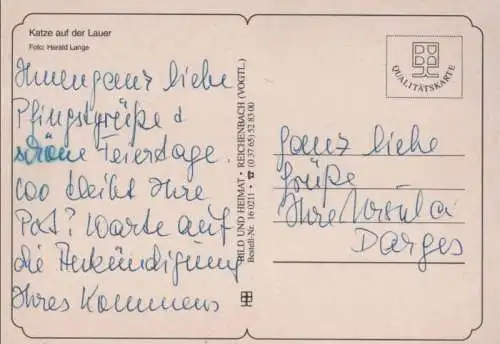 Katze auf der Lauer
Foto: Harald Lange
Ihnen ganz liebe
Pfingstgrüße &
schöne Feiertage.
wo bleibt Ihre
Post? Warte auf
die Ankündigung
Ihres Kommens
BILD UND HEIMAT · REICHENBACH (VOGTL.)
Bestell-Nr. 16 0211 · ☎ (0 37 65) 52 83 00
QUALITÄTSKARTE
ganz liebe
Grüße
Ihre Ursula
Darges